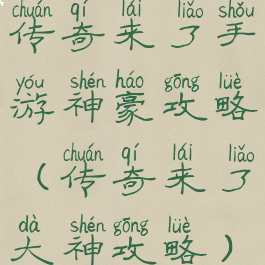 chuán qí lái liǎo shǒu
传奇来了手
yóu shén háo gōng lüè
游神豪攻略
chuán qí lái liǎo
（传奇来了
dà shén gōng lüè
大神攻略）